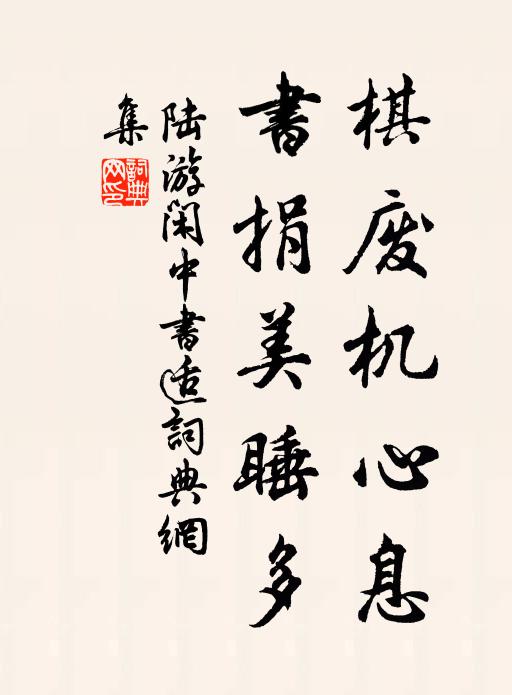 棋废机心息
书捐美睡多
陆游闲中书适词典网
集
词典网印